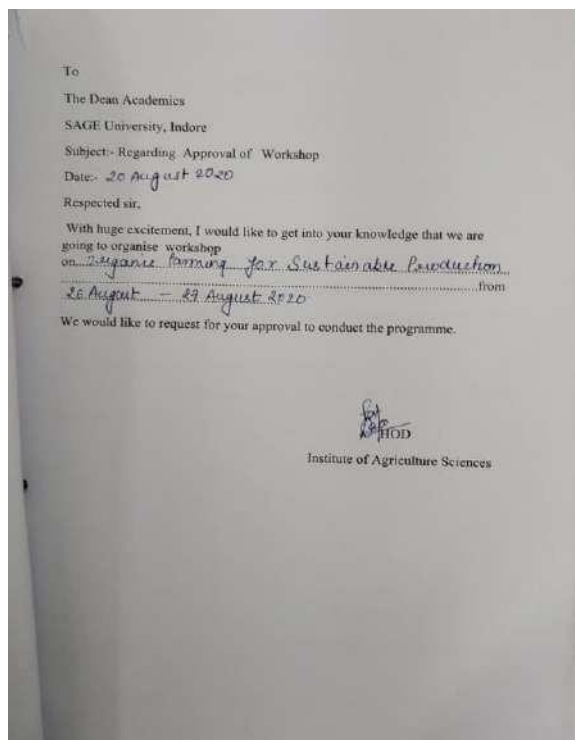 To
The Dean Academics
SAGE University, Indore
Subject:- Regarding Approval of Workshop
Date:- 20 August 2020
Respected sir,
With huge excitement, I would like to get into your knowledge that we are
going to organise workshop
on Organic farming for Sustainable Production
from
26 August - 27 August 2020
We would like to request for your approval to conduct the programme.
HOD
Institute of Agriculture Sciences